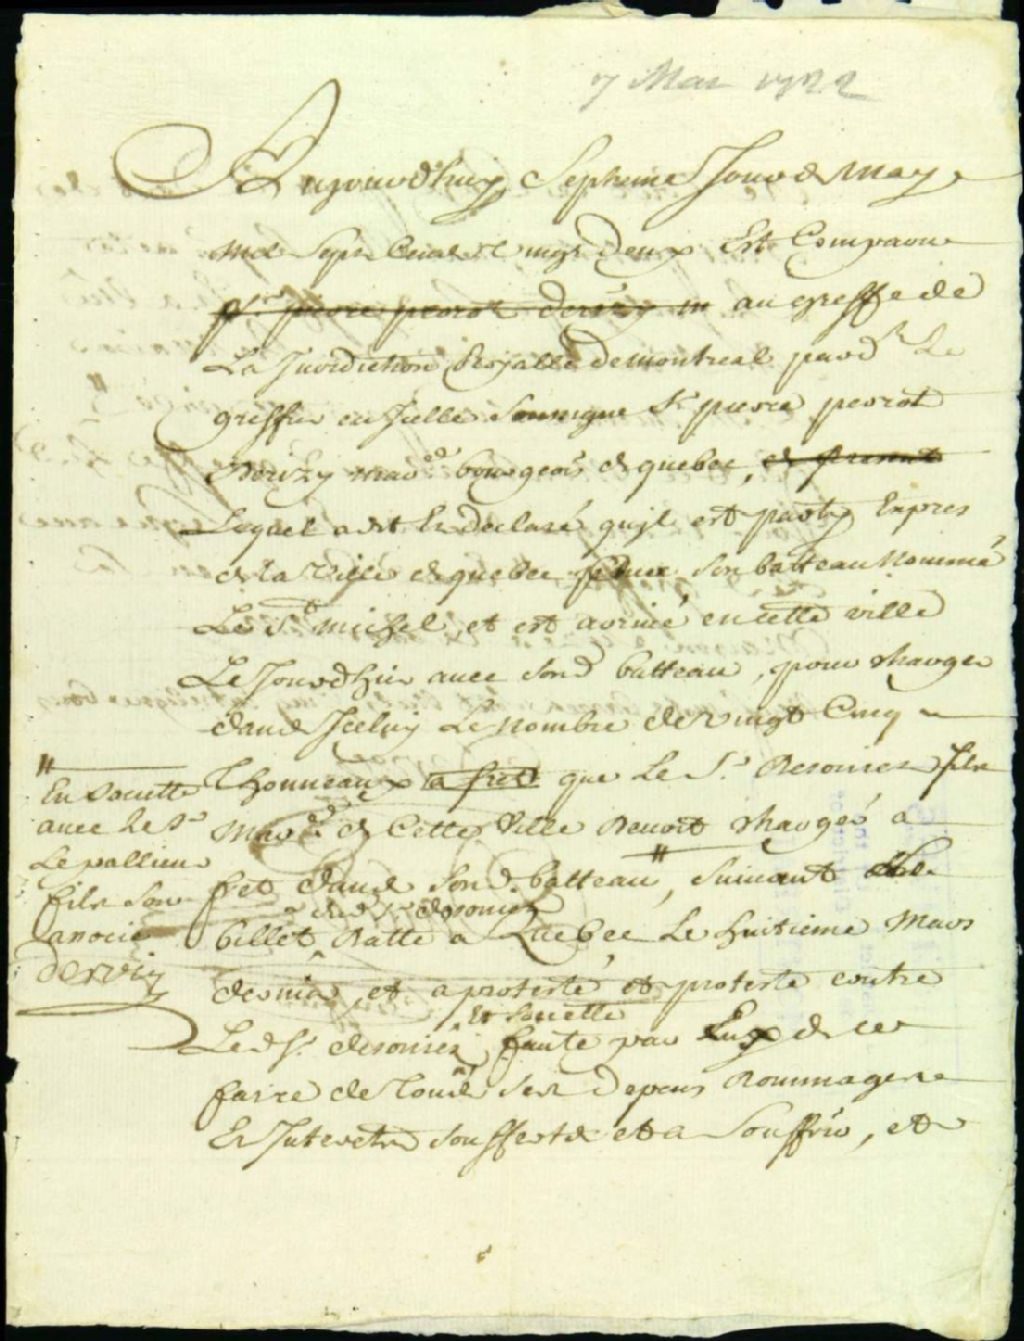 7 Mai 1722
Aujourdhuy Septieme Jour de May
mil Sept Cent Vingt deux Est Comparu
Sr. pierre perrot derizy m au greffe de
La Jurdiction Royalle de montreal pard. Le
greffier en Jcelle Sr. pierre perrot
Derizy mard bourgeois de quebec,
Lequel a dit Et declaré qujl est party Expres
de la Ville de quebec son batteau Nommé
Le St. michel et est arrivé en cette ville
Le Jourdhier avec sond. batteau, pour charger
dans Jceluy Le nombre de Vingt Cinq
Thonneaux a fret que Le Sr. fils
mard. de Cette Ville Devoit charger a
fret dans sond. batteau, suivant
dud. Sr.
billet datté a Quebec Le huitieme Mars
dernier, et a protesté et proteste contre
Et Société
Led. Sr. faute par Eux de ce
faire de tous ses depens Dommages
Et Interets soufferts et a Souffrir, et
En Société
avec le Sr.
Lepallieur
fils son
associé